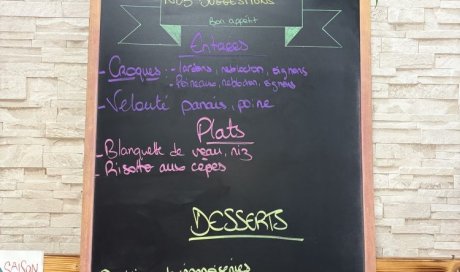 NOS SUGGESTIONS
Bon appétit
Entrées
- Croques : - Lardons, reblochon, oignons
- Poireaux, reblochon, oignons
- Velouté panais, poire
Plats
- Blanquette de veau, riz
- Risotto aux cèpes
DESSERTS
SAISON